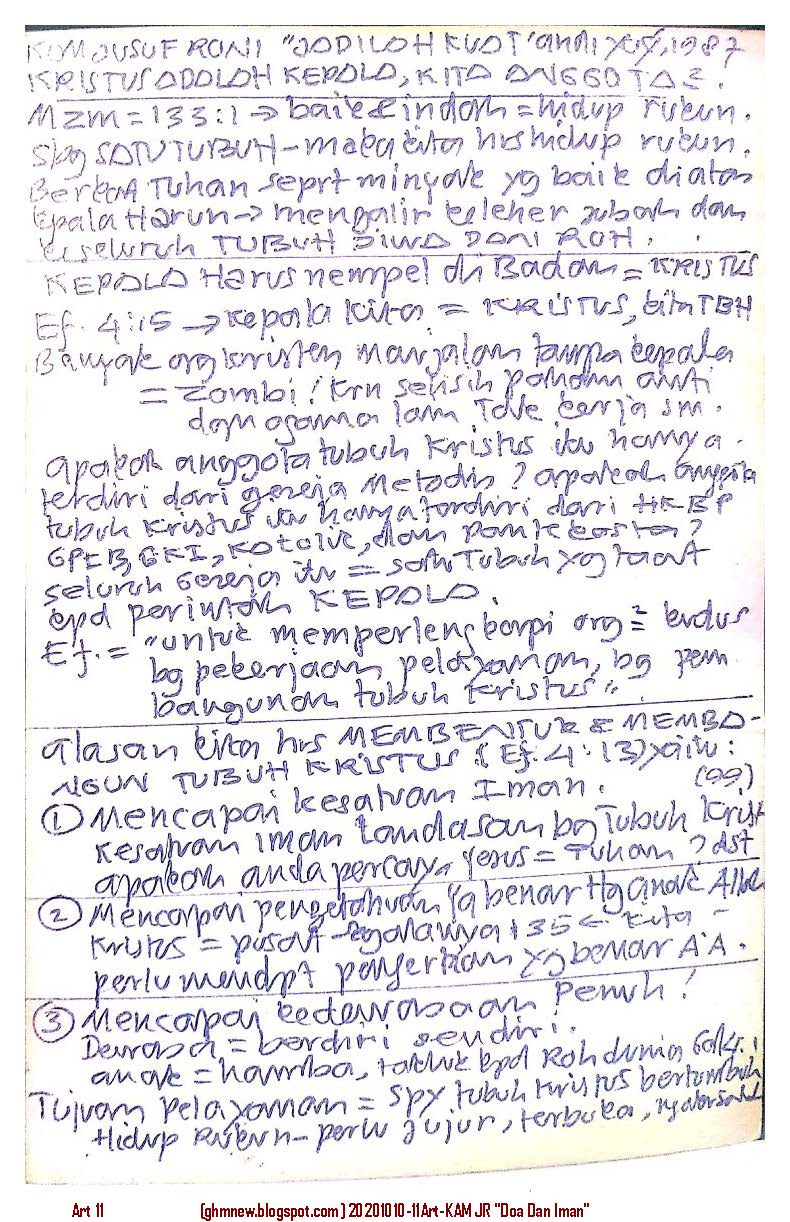 KAM JUSUF RONI "JADILAH KUAT" andi yog, 1987
KRISTUS ADALAH KEPALA, KITA ANGGOTA2.
MZM = 133:1 → baik & indah = hidup rukun.
Sbg SATU TUBUH - maka kita hrs hidup rukun.
Berkat Tuhan seprt minyak yg baik diatas
kepala Harun → mengalir keleher jubah dan
keseluruh TUBUH JIWA DAN ROH.
KEPALA Harus nempel di Badan = KRISTUS
Ef. 4:15 → kepala kita = KRISTUS, kita TBH
Banyak org kristen marjalan tanpa kepala
= Zombi! Krn selisih paham anti
dgn agama lain Tdk kerja sm.
apakah anggota tubuh Kristus itu hanya
terdiri dari gereja Metodis? apakah anggota
tubuh Kristus itu hanya tardiri dari HKBP
GPIB, GKI, KATOLIK, dan pantekosta?
seluruh Gereja itu = satu Tubuh yg taat
kpd perintah KEPALA.
Ef. = "untuk memperlengkapi org2 = kudus
bg pekerjaan pelayanan, bg pem
bangunan tubuh Kristus".
alasan kita hrs MEMBENTUK & MEMBA-
NGUN TUBUH KRISTUS (Ef. 4:13) yaitu:
(99)
① Mencapai kesatuan Iman.
Kesatuan iman landasan bg Tubuh Krist
apakah anda percaya Yesus = Tuhan? dst
② Mencapai pengetahuan Yg benar ttg anak Allah
Kristus = pusat segalanya : 35 ← Kita -
perlu mendpt pengertian yg benar A.A.
③ Mencapai kedewasaan Penuh!
Dewasa = berdiri sendiri.
anak = hamba, takluk kpd Roh dunia Gal4:1
Tujuan pelayanan = spy tubuh kristus bertumbuh
Hidup Rukun - perlu jujur, terbuka,
Art 11 (ghmnew.blogspot.com) 20201010-11Art-KAM JR "Doa Dan Iman"